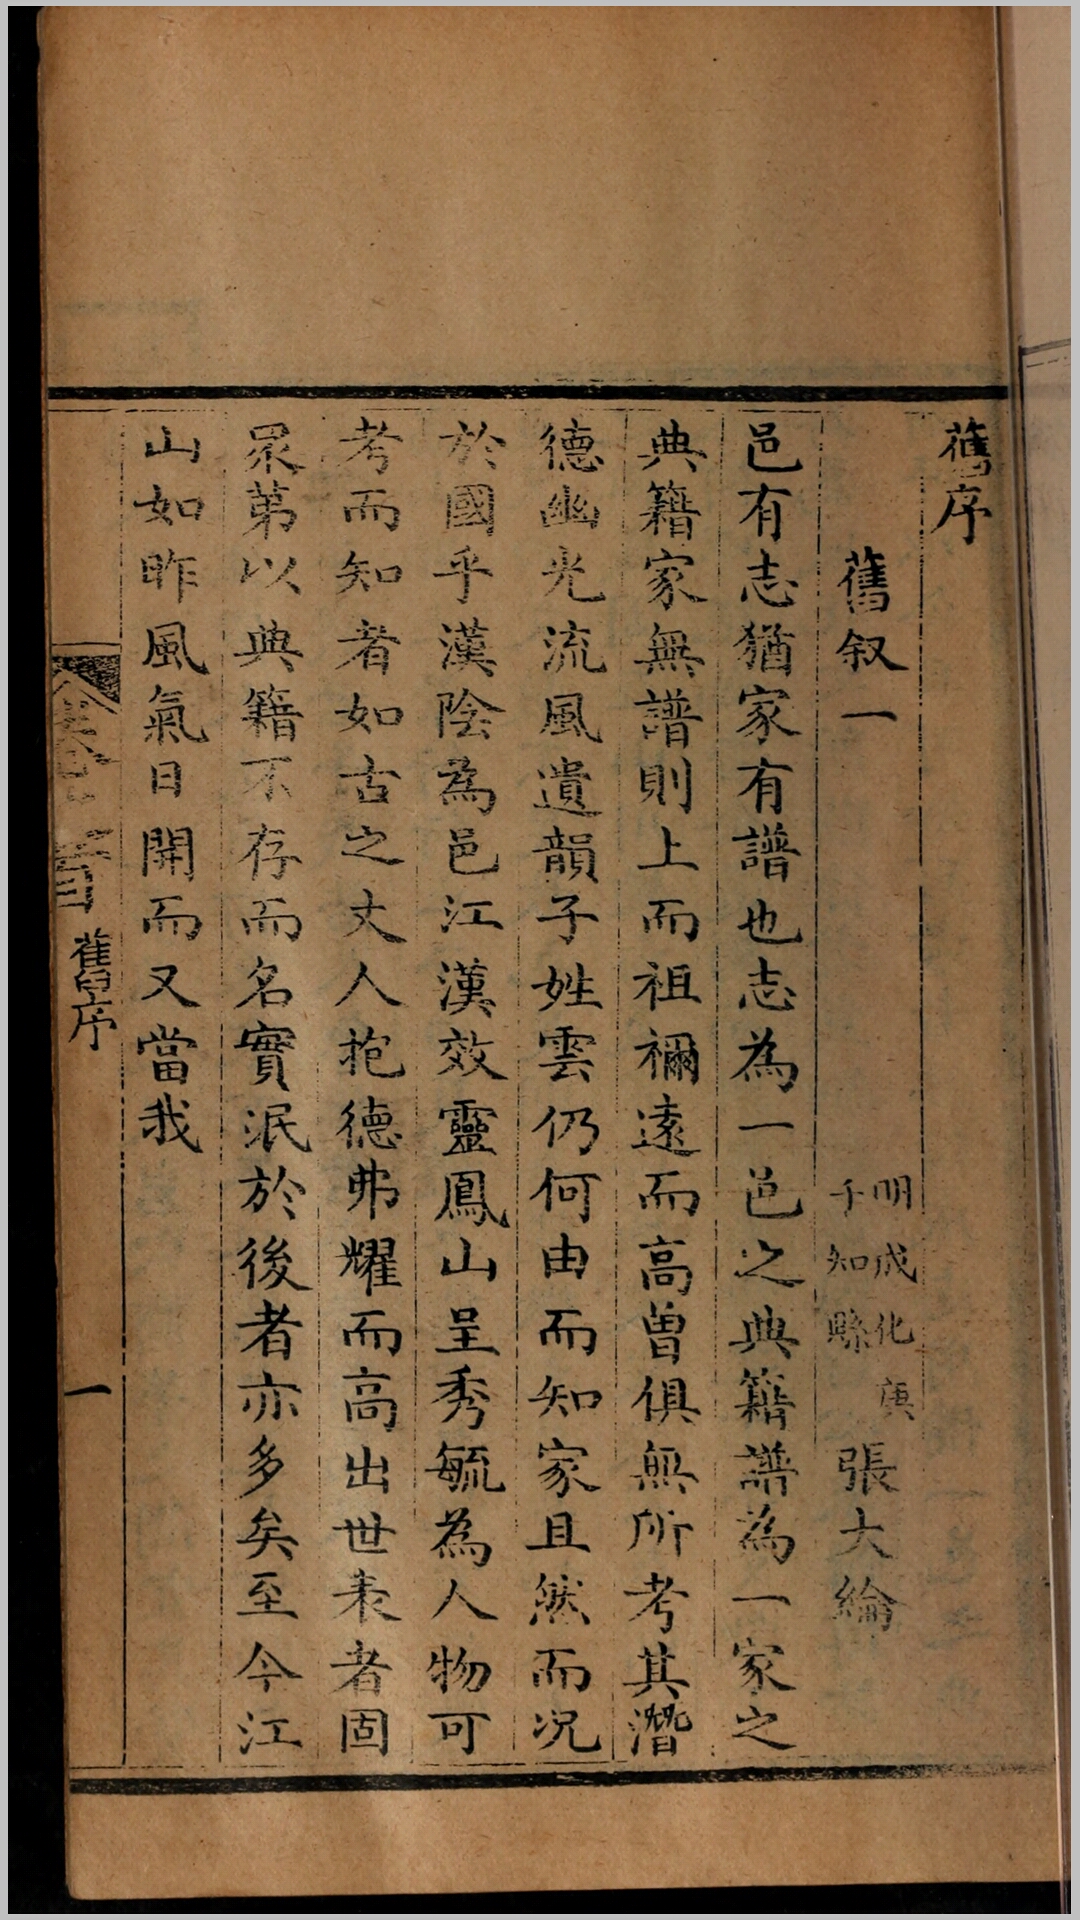 舊序
舊叙一 明成化庚子知縣 張大綸
邑有志猶家有譜也志為一邑之典籍譜為一家之
典籍家無譜則上而祖禰遠而高曾俱無所考其潛
德幽光流風遺韻子姓雲仍何由而知家且然而况
於國乎漢陰為邑江漢效靈鳳山呈秀毓為人物可
考而知者如古之丈人抱德弗耀而高出世表者固
眾第以典籍不存而名實泯於後者亦多矣至今江
山如昨風氣日開而又當我
卷首 舊序 一